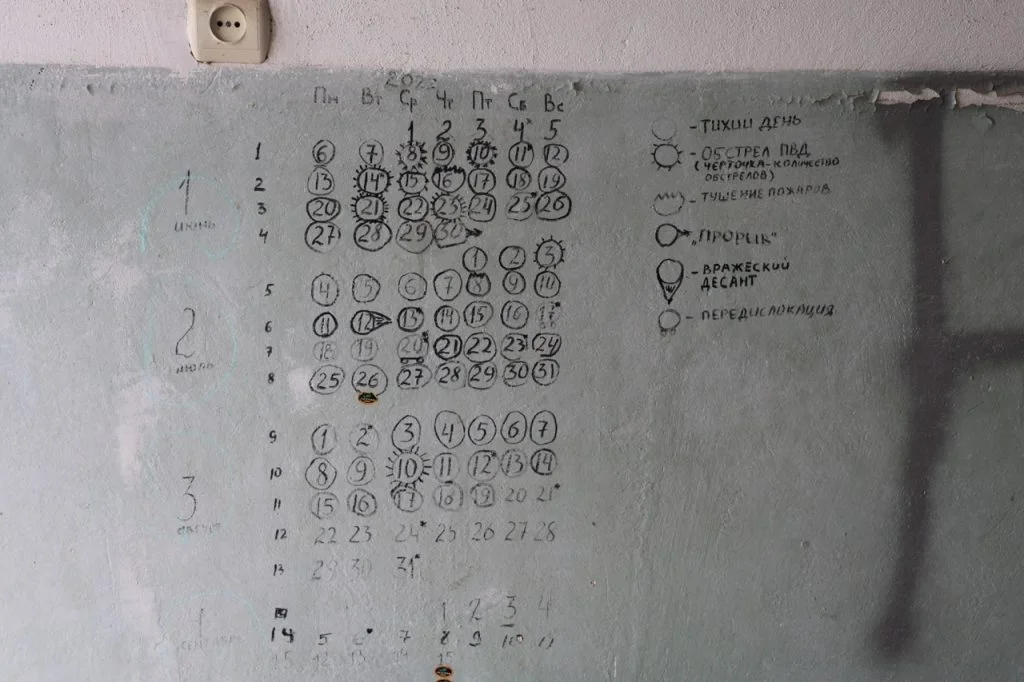 202
Пн Вт Ср Чт Пт Сб Вс
1 2 3 4 5
1 6 7 8 9 10 11 12
2 13 14 15 16 17 18 19
3 20 21 22 23 24 25 26
4 27 28 29 30
1
июнь
1 2 3
5 4 5 6 7 8 9 10
6 11 12 13 14 15 16 17
7 18 19 20 21 22 23 24
8 25 26 27 28 29 30 31
2
июль
9 1 2 3 4 5 6 7
10 8 9 10 11 12 13 14
11 15 16 17 18 19 20 21
12 22 23 24 25 26 27 28
13 29 30 31
3
август
1 2 3 4
14 5 6 7 8 9 10 11
15 12 13 14 15
- ТИХИЙ ДЕНЬ
- ОБСТРЕЛ ПВД
(ЧЕРТОЧКА-КОЛИЧЕСТВО
ОБСТРЕЛОВ)
- ТУШЕНИЕ ПОЖАРОВ
- „ПРОРЫВ"
- ВРАЖЕСКИЙ
ДЕСАНТ
- ПЕРЕДИСЛОКАЦИЯ